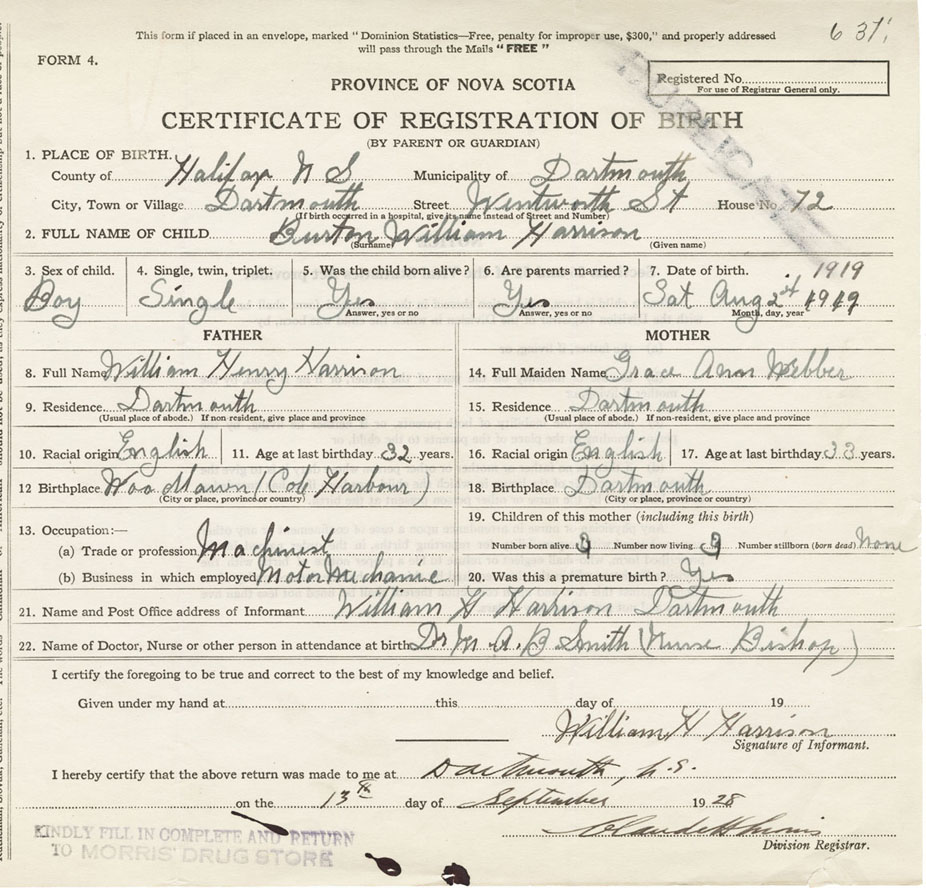 This form if placed in an envelope, marked "Dominion Statistics—Free, penalty for improper use, $300," and properly addressed
will pass through the Mails "FREE"
FORM 4.
Registered No
For use of Registrar General only.
PROVINCE OF NOVA SCOTIA
DUPLICATE
CERTIFICATE OF REGISTRATION OF BIRTH
(BY PARENT OR GUARDIAN)
1. PLACE OF BIRTH.
County of Halifax N S Municipality of Dartmouth
City, Town or Village Dartmouth Street Wentworth St House No. 72
(If birth occurred in a hospital, give its name instead of Street and Number)
2. FULL NAME OF CHILD Burton William Harrison
(Surname) (Given name)
3. Sex of child. 4. Single, twin, triplet. 5. Was the child born alive? 6. Are parents married? 7. Date of birth. 1919
Boy Single Yes Yes Sat Aug 2nd 1919
Answer, yes or no Answer, yes or no Month, day, year
FATHER MOTHER
8. Full Name William Henry Harrison 14. Full Maiden Name Grace Ann Webber
9. Residence Dartmouth 15. Residence Dartmouth
(Usual place of abode.) If non-resident, give place and province (Usual place of abode.) If non-resident, give place and province
10. Racial origin English 11. Age at last birthday 32 years. 16. Racial origin English 17. Age at last birthday 33 years.
12 Birthplace Woodlawn (Cole Harbour) 18. Birthplace Dartmouth
(City or place, province or country) (City or place, province or country)
13. Occupation:— 19. Children of this mother (including this birth)
(a) Trade or profession Machinest Number born alive Number now living Number stillborn (born dead) None
(b) Business in which employed Motor Mechanic 20. Was this a premature birth? Yes
21. Name and Post Office address of Informant William H Harrison Dartmouth
22. Name of Doctor, Nurse or other person in attendance at birth Dr M. A. B Smith (Nurse Bishop)
I certify the foregoing to be true and correct to the best of my knowledge and belief.
Given under my hand at this day of 19
William H Harrison
Signature of Informant.
I hereby certify that the above return was made to me at Dartmouth, N.S.
on the 13th day of September 1928
Division Registrar.
KINDLY FILL IN COMPLETE AND RETURN
TO MORRIS' DRUG STORE